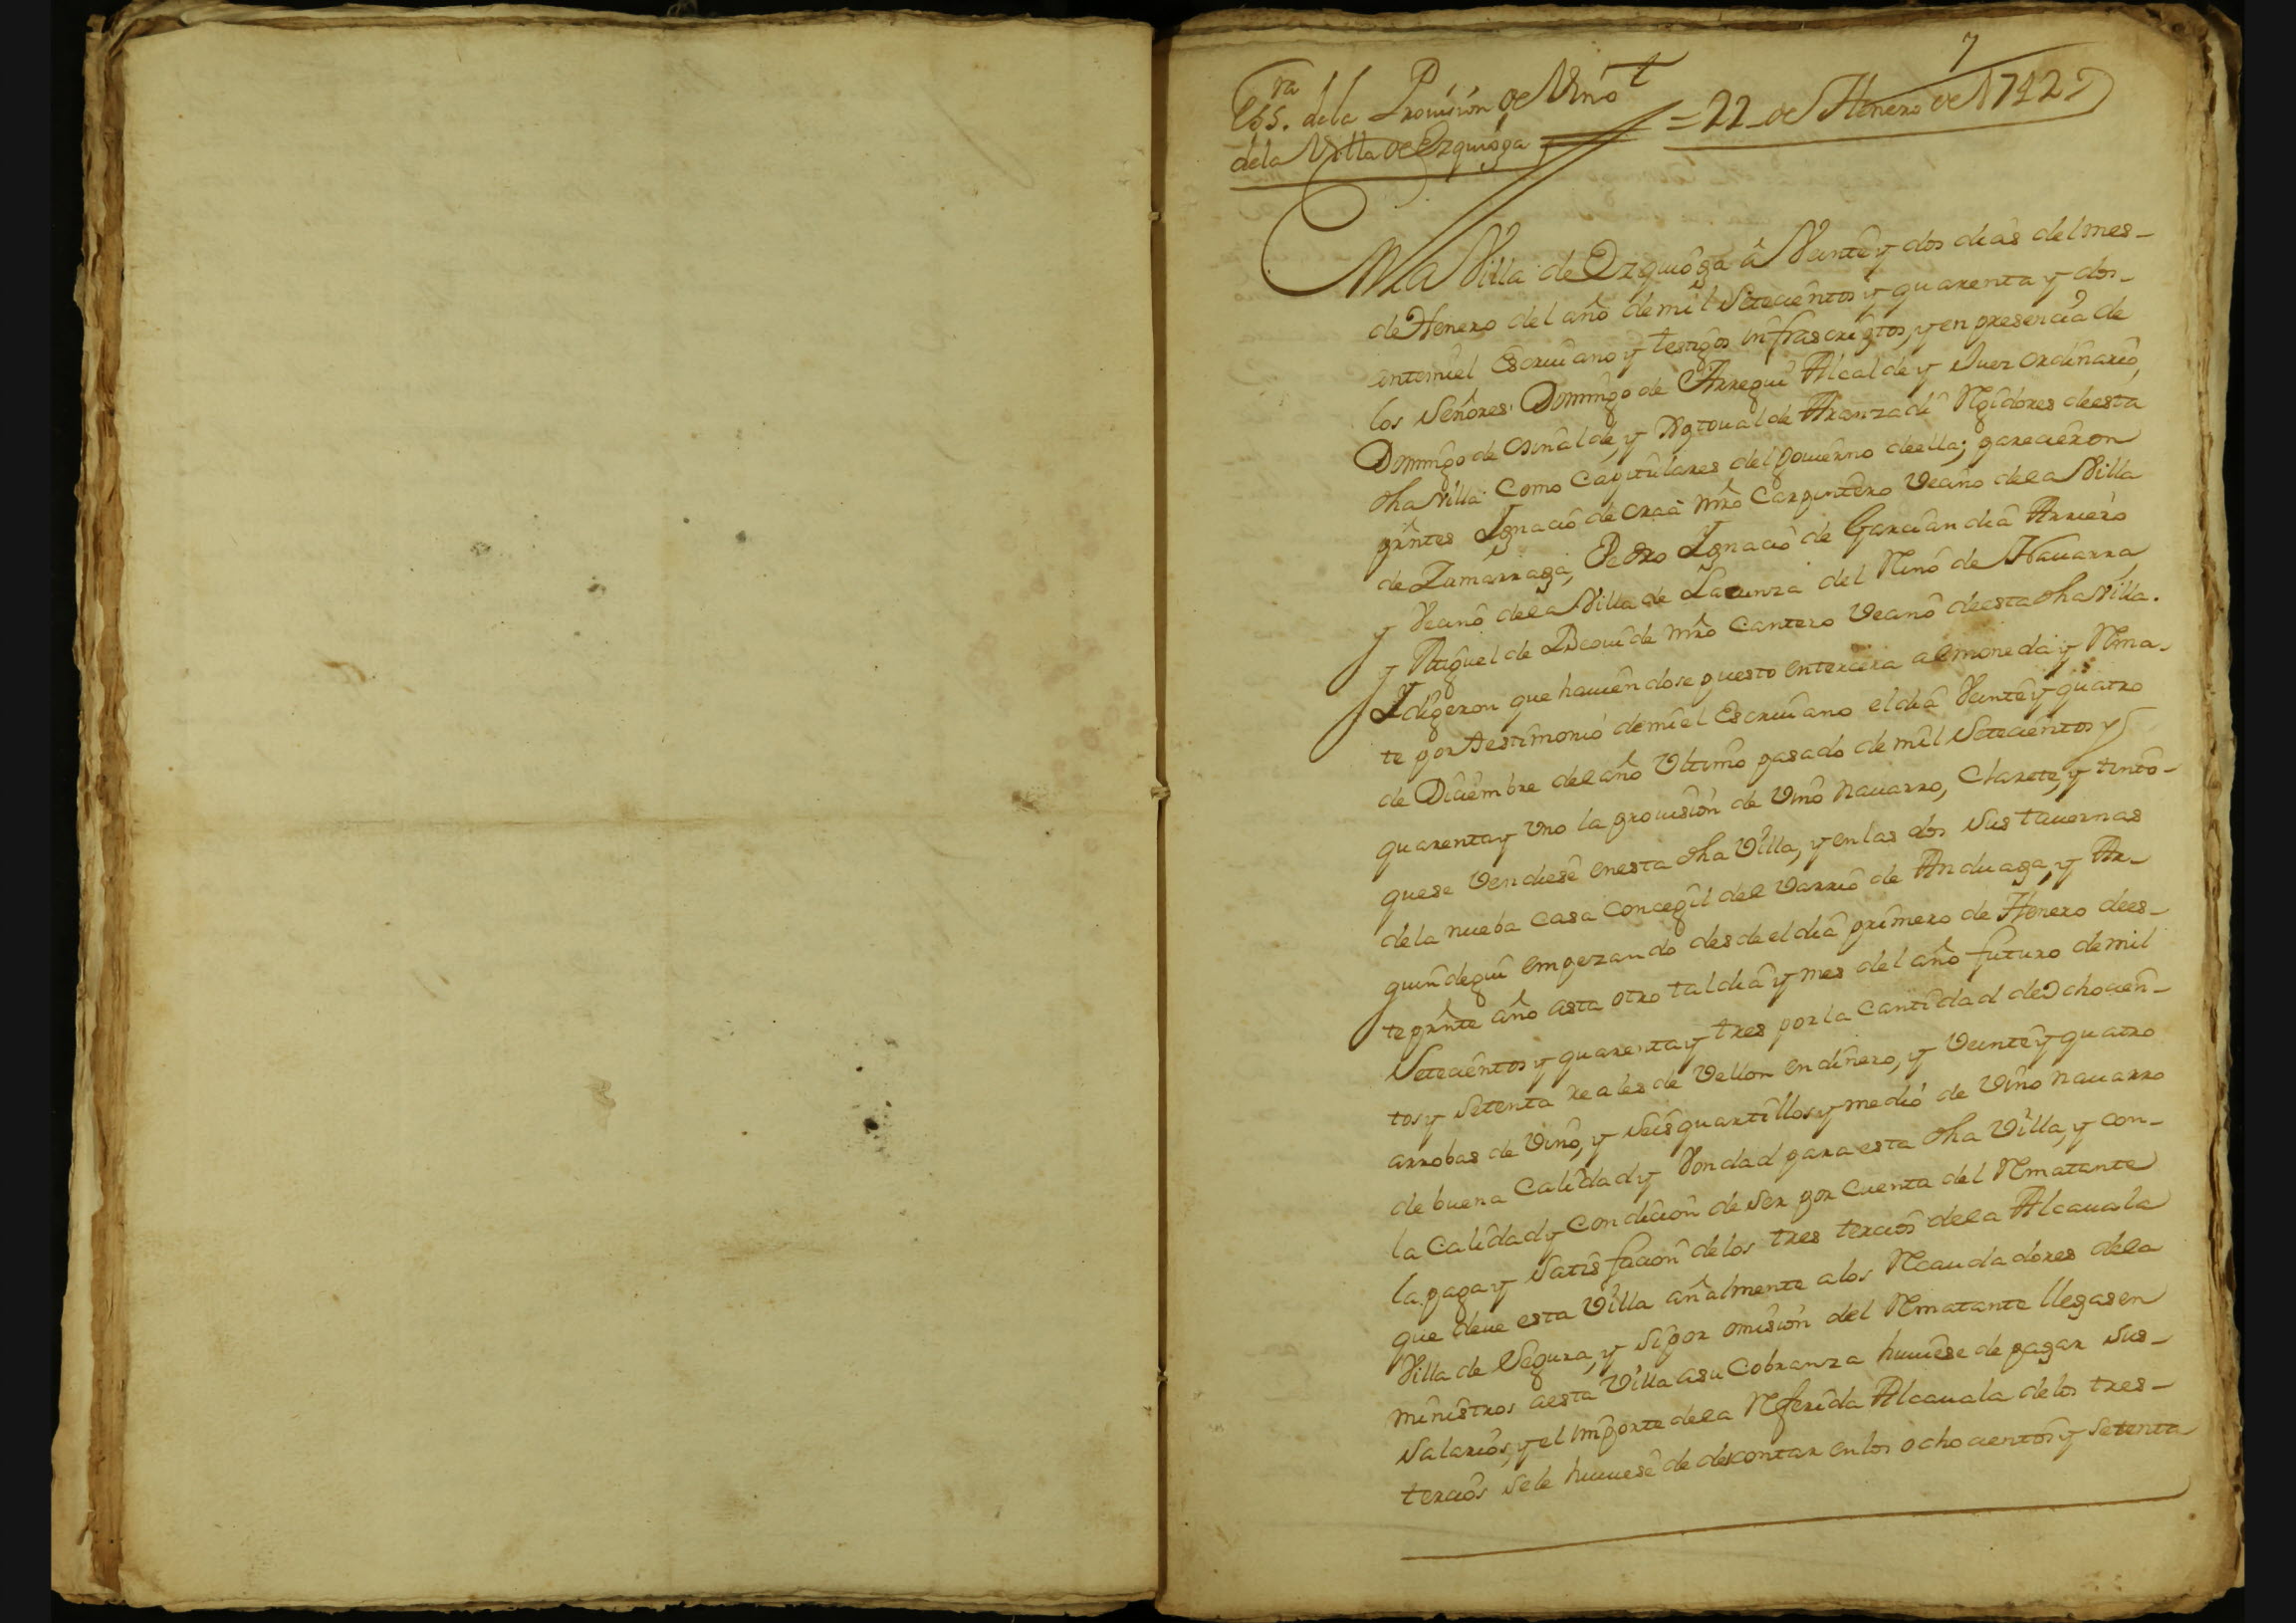 7
Ess.ra dela Prouision de Vino t
dela Villa de Ezquioga = 22 de Henero de 1742
En la Villa de Ezquioga â Veinte y dos dias del mes
de Henero del año de mil Setecientos y quarenta y dos
ante mi el Escriuano y testigos infrascriptos, y en presencia de
los Señores Domingo de Arregui Alcalde y Juez ordinario,
Domingo de Osinalde, y Xptoual de Aranzadi Rgidores de esta
dha Villa como Capitulares del gouierno de ella; parecieron
prntes Ignacio de Oraa mro Carpintero Vecino de la Villa
de Zumarraga, Pedro Ignacio de Garciandia Arriero
y Vecino de la Villa de Lacunza del Rino de Nauarra,
y Miguel de Beouide mro Cantero Vecino de esta dha Villa.
I digeron que hauiendose puesto en tercera almoneda y Rma-
te por testimonio de mi el Escriuano el dia Veinte y quatro
de Diciembre del año Ultimo pasado de mil Setecientos y
quarenta y Uno la prouision de Vino nauarro, Clarete, y tinto
que se Vendiese en esta dha Villa, y en las dos sus tauernas
de la nueba casa concegil del Varrio de Anduaga, y Ar-
guindegui empezando desde el dia primero de Henero de es-
te prnte año asta otro tal dia y mes del año futuro de mil
Setecientos y quarenta y tres por la cantidad de Ochocien-
tos y Setenta reales de Vellon en dinero, y Veinte y quatro
arrobas de Vino, y Seis quartillos y medio de Vino nauarro
de buena Calidad y Vondad para esta dha Villa, y con
la Calidad y Condicion de Ser por Cuenta del Rmatante
la paga y Satisfacion de los tres tercios de la Alcauala
que deue esta Villa añalmente a los Rcaudadores de la
Villa de Segura, y Si por omision del Rmatante llegasen
ministros a esta Villa a su Cobranza huuiese de pagar Sus
Salarios, y el Importe de la Rferida Alcauala de los tres
tercios Se le huuiese de descontar en los ochocientos y Setenta